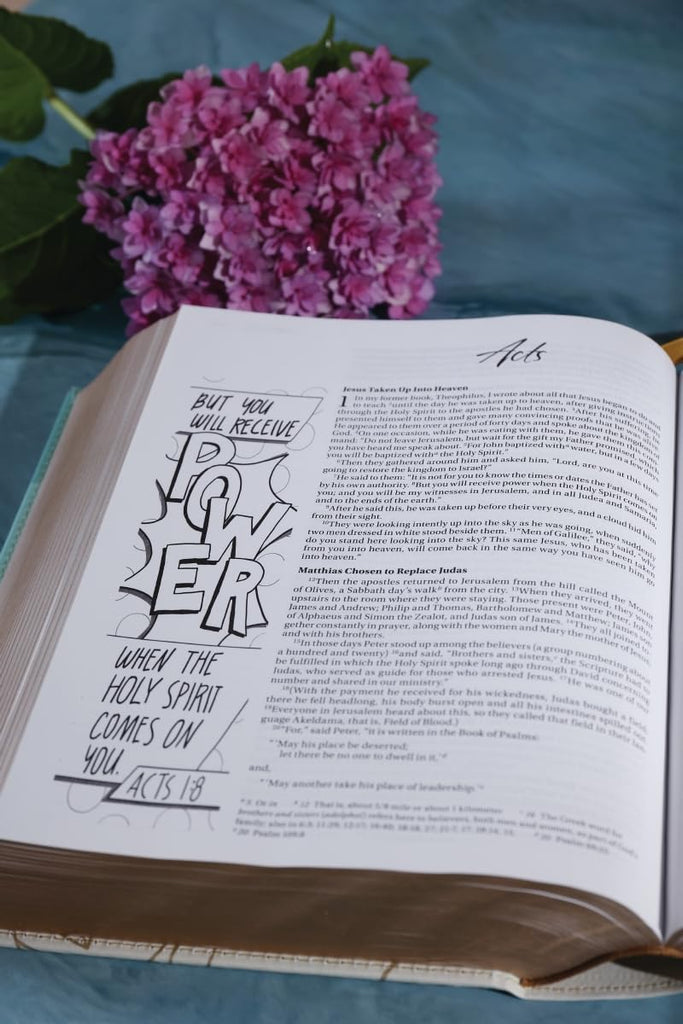 Acts
BUT YOU
WILL RECEIVE
POWER
WHEN THE
HOLY SPIRIT
COMES ON
YOU.
ACTS 1:8
Jesus Taken Up Into Heaven
1 In my former book, Theophilus, I wrote about all that Jesus began to do and
to teach 2until the day he was taken up to heaven, after giving instructions
through the Holy Spirit to the apostles he had chosen. 3After his suffering, he
presented himself to them and gave many convincing proofs that he was alive.
He appeared to them over a period of forty days and spoke about the kingdom of
God. 4On one occasion, while he was eating with them, he gave them this com-
mand: "Do not leave Jerusalem, but wait for the gift my Father promised, which
you have heard me speak about. 5For John baptized with water, but in a few days
you will be baptized with the Holy Spirit."
6Then they gathered around him and asked him, "Lord, are you at this time
going to restore the kingdom to Israel?"
7He said to them: "It is not for you to know the times or dates the Father has set
by his own authority. 8But you will receive power when the Holy Spirit comes on
you; and you will be my witnesses in Jerusalem, and in all Judea and Samaria,
and to the ends of the earth."
9After he said this, he was taken up before their very eyes, and a cloud hid him
from their sight.
10They were looking intently up into the sky as he was going, when suddenly
two men dressed in white stood beside them. 11"Men of Galilee," they said, "why
do you stand here looking into the sky? This same Jesus, who has been taken
from you into heaven, will come back in the same way you have seen him go
into heaven."
Matthias Chosen to Replace Judas
12Then the apostles returned to Jerusalem from the hill called the Mount
of Olives, a Sabbath day's walk from the city. 13When they arrived, they went
upstairs to the room where they were staying. Those present were Peter, John,
James and Andrew; Philip and Thomas, Bartholomew and Matthew; James son
of Alphaeus and Simon the Zealot, and Judas son of James. 14They all joined to-
gether constantly in prayer, along with the women and Mary the mother of Jesus,
and with his brothers.
15In those days Peter stood up among the believers (a group numbering about
a hundred and twenty) 16and said, "Brothers and sisters, the Scripture had to
be fulfilled in which the Holy Spirit spoke long ago through David concerning
Judas, who served as guide for those who arrested Jesus. 17He was one of our
number and shared in our ministry."
18(With the payment he received for his wickedness, Judas bought a field;
there he fell headlong, his body burst open and all his intestines spilled out.
19Everyone in Jerusalem heard about this, so they called that field in their lan-
guage Akeldama, that is, Field of Blood.)
20"For," said Peter, "it is written in the Book of Psalms:
"'May his place be deserted;
let there be no one to dwell in it,'
and,
"'May another take his place of leadership.'